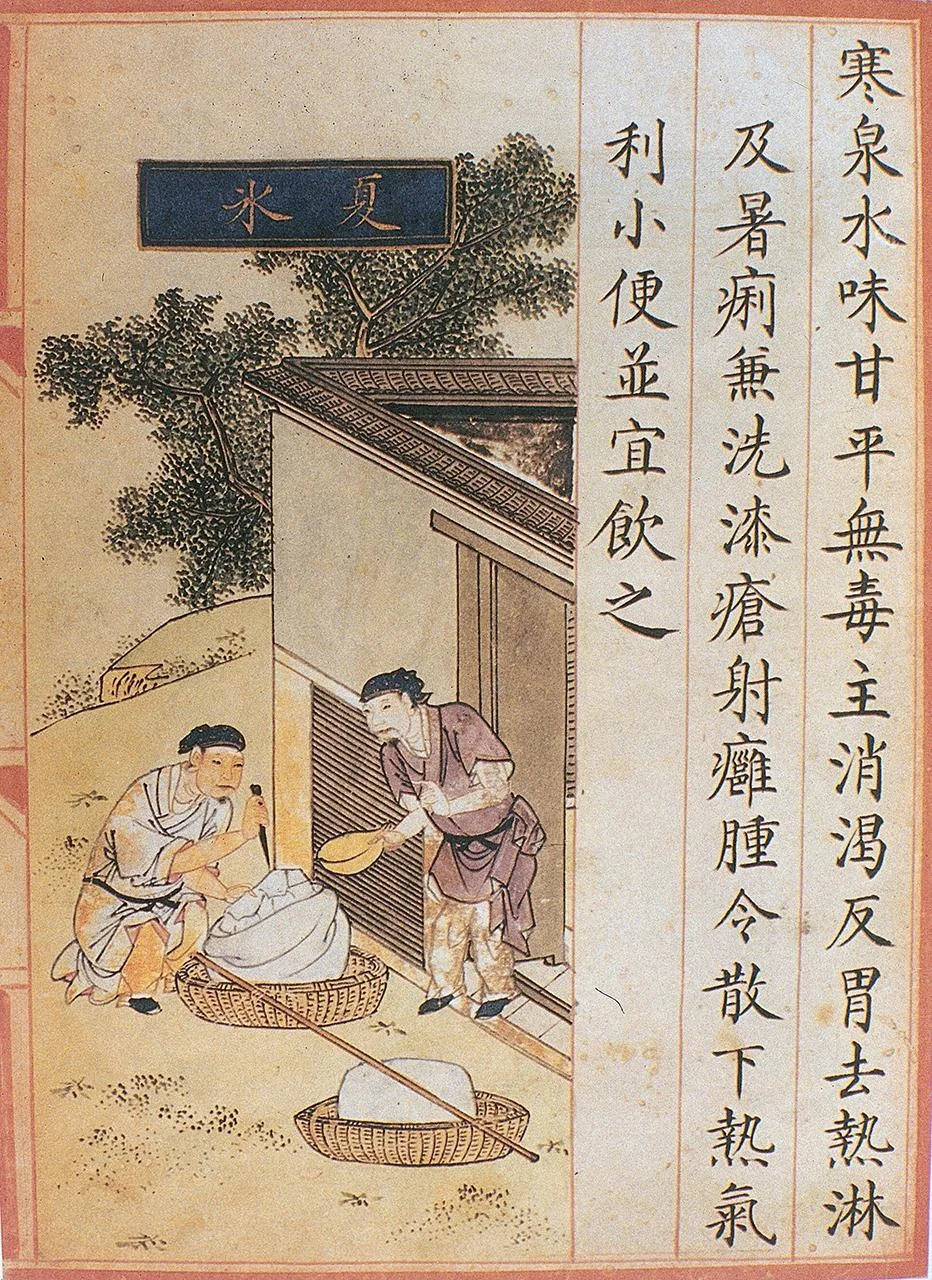 寒泉水味甘平無毒主消渴反胃去熱淋
及暑痢兼洗漆瘡射癰腫令散下熱氣
利小便並宜飲之
夏氷